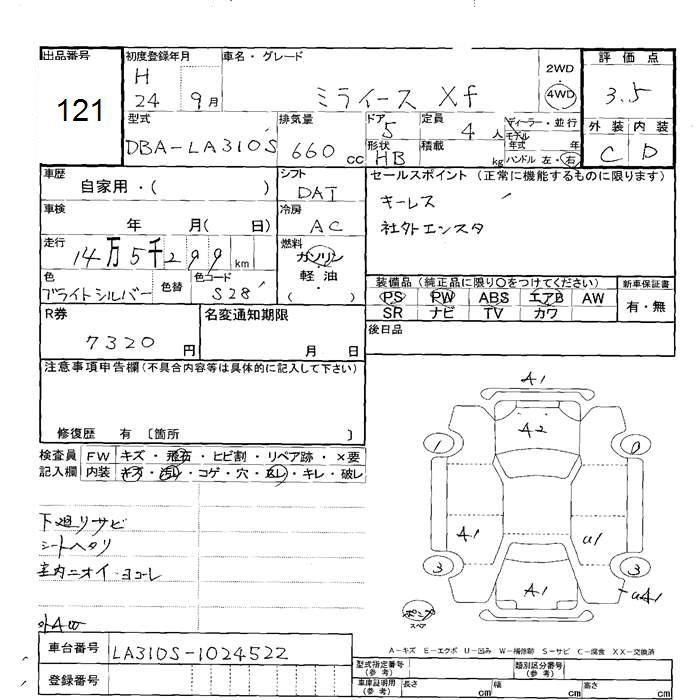 出品番号
121
初度登録年月
H
24 9月
車名・グレード
ミライース Xf
2WD
4WD
評価点
3.5
外装 内装
C D
型式
DBA-LA310S
排気量
660 cc
ドア
5
形状
HB
定員
4 人
積載
kg
ディーラー・並行
モデル
年式 年
ハンドル 左・右
車歴
自家用・( )
シフト
DAT
セールスポイント (正常に機能するものに限ります)
キーレス
社外エンスタ
車検
年 月( 日)
冷房
AC
走行
14万5千299 km
燃料
ガソリン
軽油
( ・ )
色
ブライトシルバー
色替
色コード
S28
装備品(純正品に限り○をつけてください)
PS PW ABS エアB AW
SR ナビ TV カワ
新車保証書
有・無
R券
7320 円
名変通知期限
月 日
後日品
注意事項申告欄(不具合内容等は具体的に記入して下さい)
修復歴 有 〔箇所 〕
検査員
記入欄
FW キズ・飛石・ヒビ割・リペア跡・×要
内装 キズ・汚レ・コゲ・穴・スレ・キレ・破レ
下廻リサビ
シートヘタリ
室内ニオイ・ヨコレ
外AW
A1
A2
1 0
A1 u1
3 3
A1 uA1
ポンプ
スペア
A−キズ E−エクボ U−凹み W−補修跡 S−サビ C−腐食 XX−交換済
車台番号
LA310S-1024522
登録番号
型式指定番号
(参考)
類別区分番号
(参考)
車庫証明用
(参考)
長さ cm 幅 cm 高さ cm